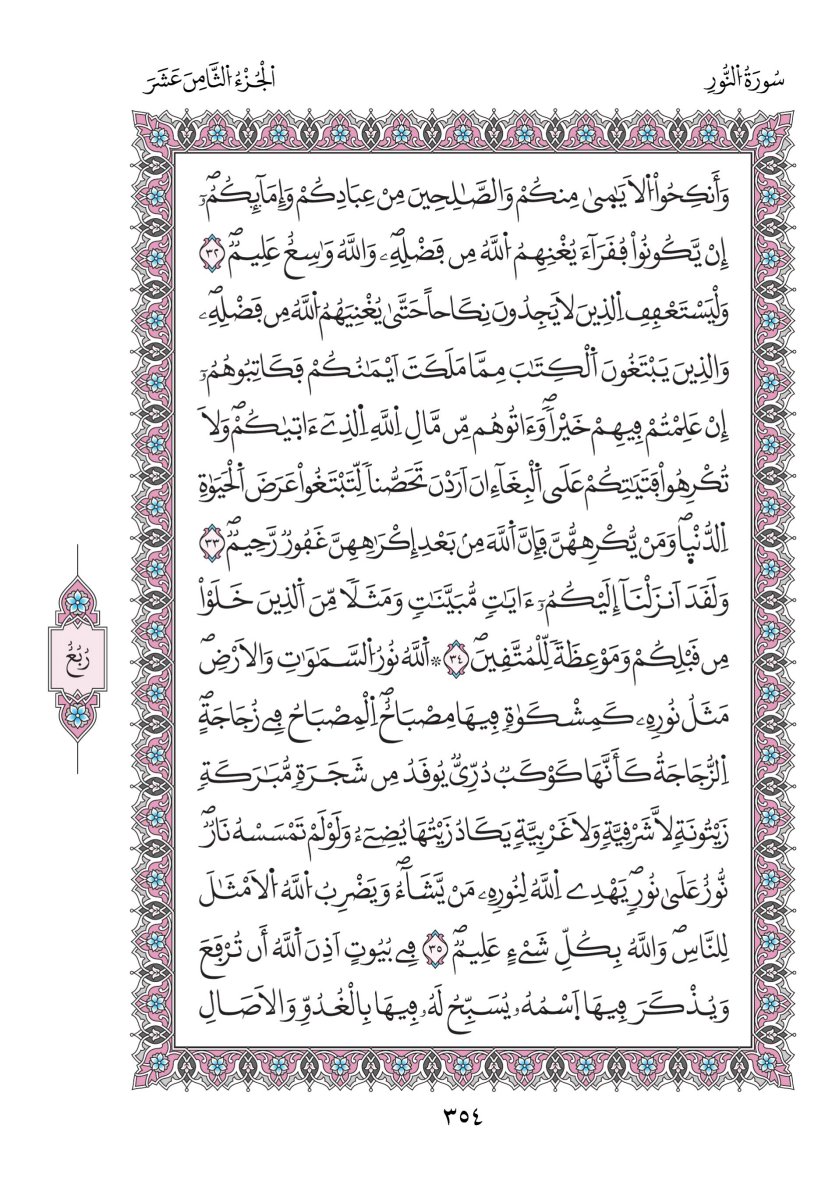 سُورَةُ اُ۬لنُّورِ
اَ۬لْجُزْءُ اُ۬لثَّامِنَ عَشَرَ
وَأَنكِحُواْ اُ۬لَايَٰمِىٰ مِنكُمْ وَالصَّٰلِحِينَ مِنْ عِبَادِكُمْ وَإِمَآئِكُمُۥٓۖ
إِنْ يَّكُونُواْ فُقَرَآءَ يُغْنِهِمُ اُ۬للَّهُ مِن فَضْلِهِۦۖ وَاللَّهُ وَٰسِعٌ عَلِيمٞۖ ٣٢
وَلْيَسْتَعْفِفِ اِ۬لذِينَ لَا يَجِدُونَ نِكَاحاً حَتَّىٰ يُغْنِيَهُمُ اُ۬للَّهُ مِن فَضْلِهِۦۖ
وَالذِينَ يَبْتَغُونَ اَ۬لْكِتَٰبَ مِمَّا مَلَكَتَ اَيْمَٰنُكُمْ فَكَاتِبُوهُمُۥٓ
إِنْ عَلِمْتُمْ فِيهِمْ خَيْراٗۖ وَءَاتُوهُم مِّن مَّالِ اِ۬للَّهِ اِ۬لذِےٓ ءَات۪يٰكُمْۖ وَلَا
تُكْرِهُواْ فَتَيَٰتِكُمْ عَلَى اَ۬لْبِغَآءِ انَ اَرَدْنَ تَحَصُّناٗ لِّتَبْتَغُواْ عَرَضَ اَ۬لْحَيَوٰةِ
اِ۬لدُّنْي۪اۖ وَمَنْ يُّكْرِههُّنَّ فَإِنَّ اَ۬للَّهَ مِنۢ بَعْدِ إِكْرَٰهِهِنَّ غَفُورٞ رَّحِيمٞۖ ٣٣
وَلَقَدَ اَنزَلْنَآ إِلَيْكُمُۥٓ ءَايَٰتٖ مُّبَيَّنَٰتٖ وَمَثَلاٗ مِّنَ اَ۬لذِينَ خَلَوْاْ
مِن قَبْلِكُمْ وَمَوْعِظَةٗ لِّلْمُتَّقِينَۖ ٣٤ ۞ اَ۬للَّهُ نُورُ اُ۬لسَّمَٰوَٰتِ وَالَارْضِۖ
مَثَلُ نُورِهِۦ كَمِشْكَوٰةٖ فِيهَا مِصْبَاحٌۖ اِ۬لْمِصْبَاحُ فِے زُجَاجَةٍۖ
اِ۬لزُّجَاجَةُ كَأَنَّهَا كَوْكَبٞ دُرِّيّٞ يُوقَدُ مِن شَجَرَةٖ مُّبَٰرَكَةٖ
زَيْتُونَةٖ لَّا شَرْقِيَّةٖ وَلَا غَرْبِيَّةٖ يَكَادُ زَيْتُهَا يُضِےٓءُ وَلَوْ لَمْ تَمْسَسْهُ نَارٞۖ
نُّورٌ عَلَىٰ نُورٖۖ يَهْدِے اِ۬للَّهُ لِنُورِهِۦ مَنْ يَّشَآءُۖ وَيَضْرِبُ اُ۬للَّهُ اُ۬لَامْثَٰلَ
لِلنَّاسِۖ وَاللَّهُ بِكُلِّ شَےْءٍ عَلِيمٞۖ ٣٥ فِے بُيُوتٍ اَذِنَ اَ۬للَّهُ أَن تُرْفَعَ
وَيُذْكَرَ فِيهَا اَ۪سْمُهُۥ يُسَبِّحُ لَهُۥ فِيهَا بِالْغُدُوِّ وَالَاصَالِ
رُبُعُ
٣٥٤